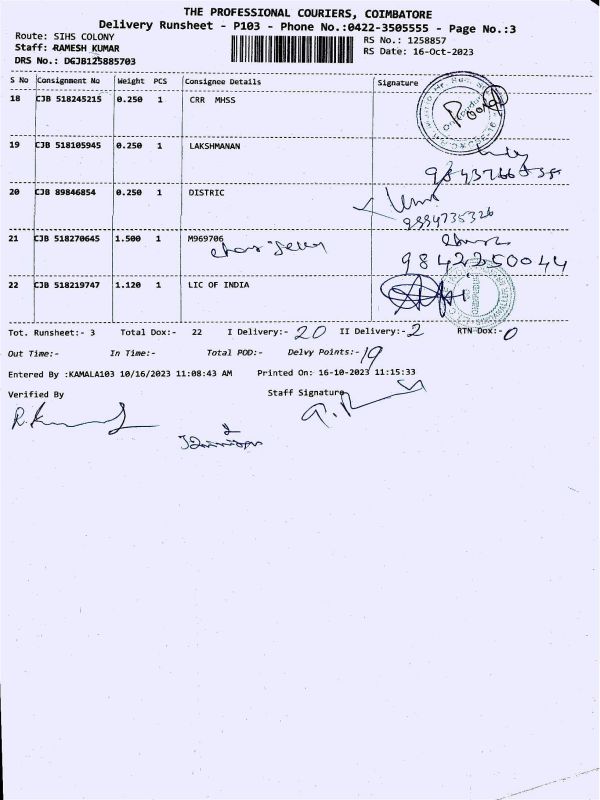 THE PROFESSIONAL COURIERS, COIMBATORE
Delivery Runsheet - P103 - Phone No.:0422-3505555 - Page No.:3
Route: SIHS COLONY
RS No.: 1258857
Staff: RAMESH KUMAR
RS Date: 16-Oct-2023
DRS No.: DGJB125885703
S No Consignment No Weight PCS Consignee Details Signature
18 CJB 518245215 0.250 1 CRR MHSS
19 CJB 518105945 0.250 1 LAKSHMANAN
20 CJB 89846854 0.250 1 DISTRIC
9994735326
21 CJB 518270645 1.500 1 M969706
9842250044
22 CJB 518219747 1.120 1 LIC OF INDIA
Tot. Runsheet:- 3 Total Dox:- 22 I Delivery:- 20 II Delivery:- 2 RTN Dox:- 0
Out Time:- In Time:- Total POD:- Delvy Points:- 19
Entered By :KAMALA103 10/16/2023 11:08:43 AM Printed On: 16-10-2023 11:15:33
Verified By Staff Signature